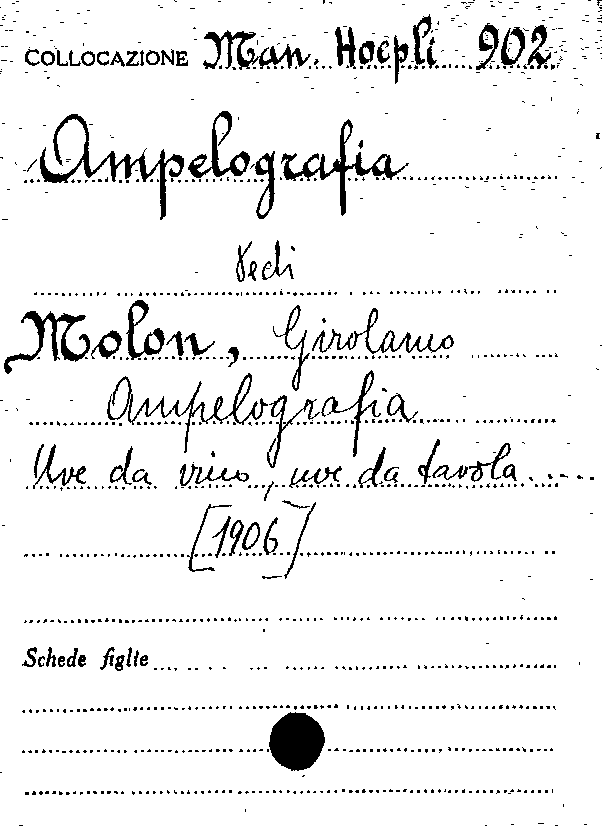 COLLOCAZIONE Man. Hoepli 902
Ampelografia
Vedi
Molon, Girolamo
Ampelografia
Uve da vino, uve da tavola....
[1906]
Schede figlie